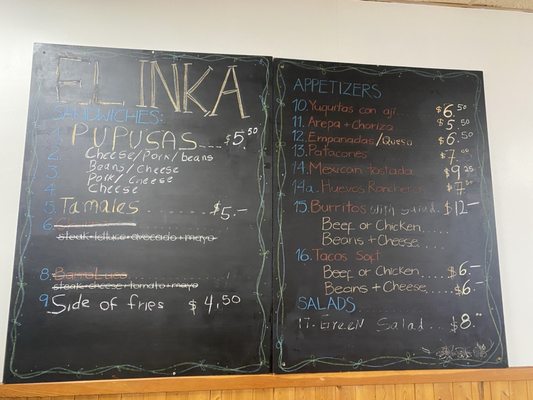 EL INKA
SANDWICHES:
PUPUSAS $5.50
2. Cheese/Pork/beans
3. Beans/Cheese
Pork/Cheese
4 Cheese
5. Tamales $5.–
6
steak-lettuce-avocado+mayo
8. Barros Luco
steak-cheese-tomato+mayo
9 Side of fries $4.50
APPETIZERS
10. Yuquitas con aji... $6.50
11. Arepa+Chorizo $5.50
12. Empanadas/Queso $6.50
13. Patacones $7.00
14. Mexican tostada $9.25
14a. Huevos Rancheros $7.50
15. Burritos with Salad. $12–
Beef or Chicken.....
Beans+Cheese.....
16. Tacos Soft
Beef or Chicken..... $6.–
Beans+Cheese..... $6.–
SALADS
17. Green Salad... $8.–